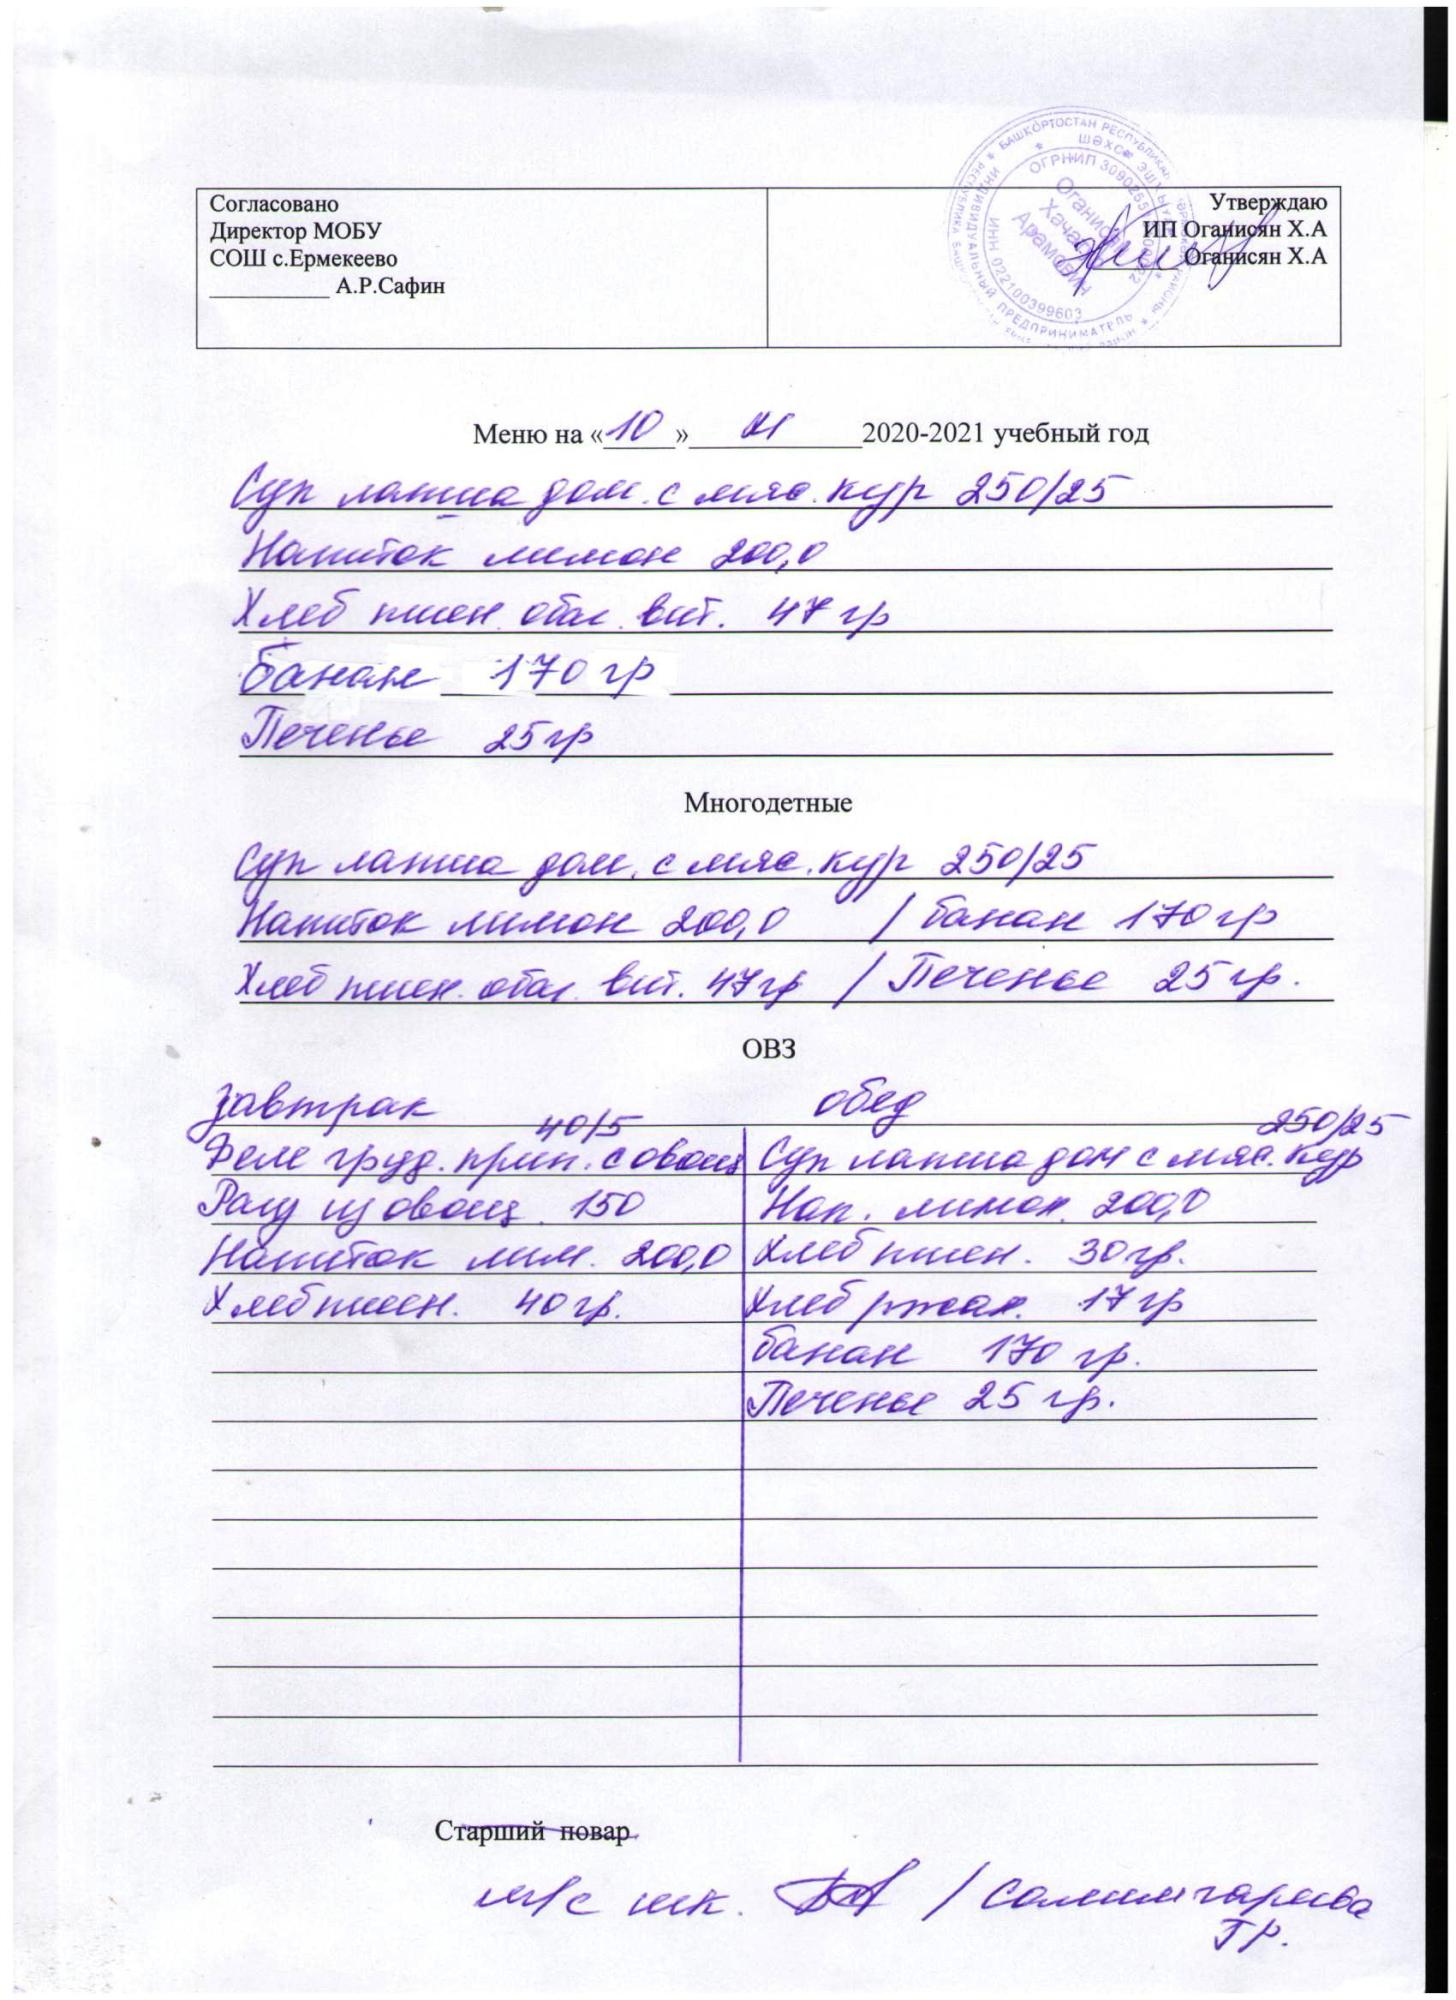 Согласовано
Директор МОБУ
СОШ с.Ермекеево
__________ А.Р.Сафин
Утверждаю
ИП Оганисян Х.А
Оганисян Х.А
ОГРНИП
Оганисян
Арамович
ИНН 022100399603
ИНДИВИДУАЛЬНЫЙ ПРЕДПРИНИМАТЕЛЬ
БАШКОРТОСТАН
Меню на «10» 2020-2021 учебный год
Суп лапша дом. с мяс. кур 250/25
Напиток лимон 200,0
Хлеб пшен. обог. вит. 47 гр
банан 170 гр
Печенье 25 гр
Многодетные
Суп лапша дом. с мяс. кур 250/25
Напиток лимон 200,0 / банан 170 гр
Хлеб пшен. обог. вит. 47 гр / Печенье 25 гр.
ОВЗ
Завтрак
40/5
Филе груд. прип. с овощ
Рагу из овощ. 150
Напиток лим. 200,0
Хлеб пшен. 40 гр.
обед
250/25
Суп лапша дом с мяс. кур
Нап. лимон. 200,0
Хлеб пшен. 30 гр.
Хлеб ржан. 17 гр
банан 170 гр.
Печенье 25 гр.
Старший повар
м/с шк. / Салимгареева
Г.Р.